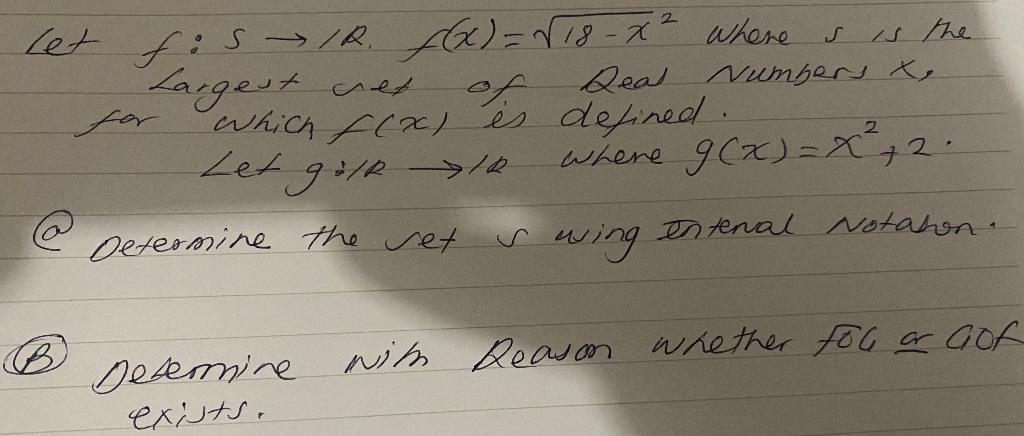 Let f: S → IR. f(x) = √18 - x² where s is the
Largest set of Real Numbers x,
for which f(x) is defined.
Let g: IR → IR where g(x) = x² + 2.
(a) Determine the set S using Interval Notation.
(B) Determine with Reason whether FOG or GOF
exists.